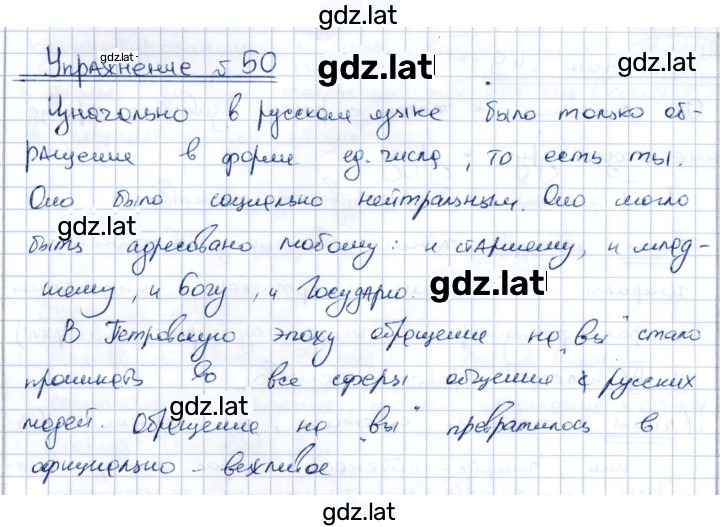 gdz.lat
gdz.lat
Упражнение № 50
gdz.lat
Изначально в русском языке было только об-
ращение в форме ед. числа, то есть ты.
Оно было социально нейтральным. Оно могло
gdz.lat
быть адресовано любому: и старшему, и млад-
шему, и Богу, и Государю.
gdz.lat
В Петровскую эпоху обращение на „вы" стало
проникать во все сферы общения русских
gdz.lat
людей. Обращение на „вы" превратилось в
официально - вежливое
gdz.lat
gdz.lat